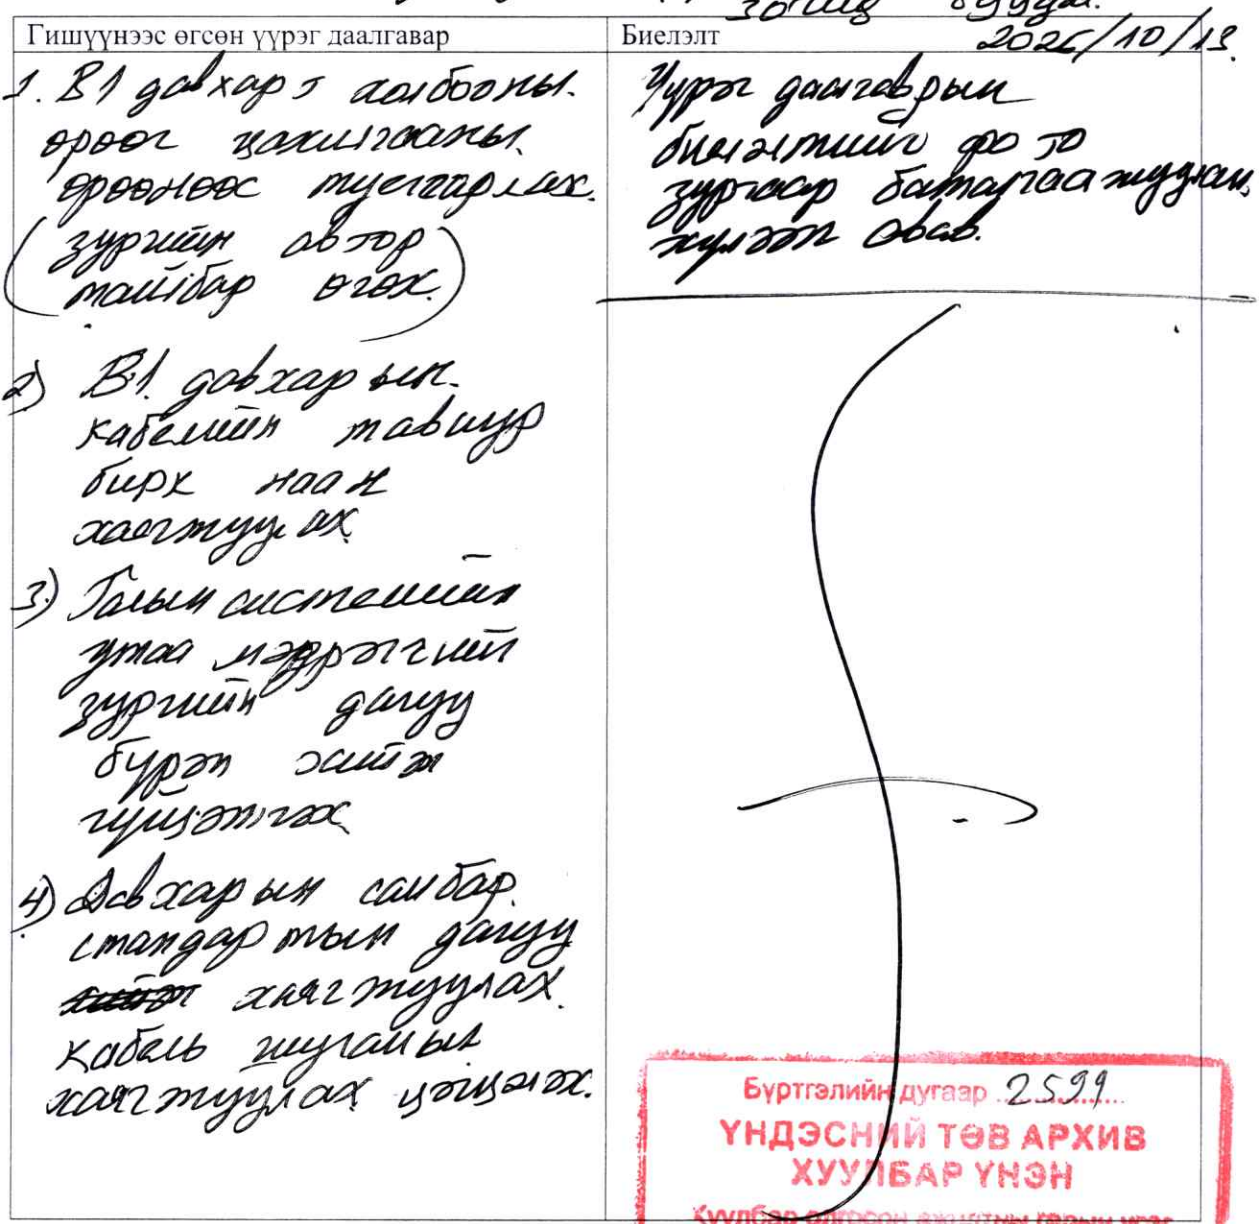 30 буудал.
Гишүүнээс өгсөн үүрэг даалгавар
Биелэлт
2025/10/13.
1. В1 давхарт холбооны.
өрөөг цахилгааны.
өрөөнөөс тусгаарлах.
(зургийн автор
тайлбар өгөх.)
2) В1. давхарын.
кабелийн тавиур
бирк наан
хаягжуулах
3) Галын системийн
утаа мэдрэгчийг
зургийн дагуу
бүрэн хийж
гүйцэтгэх
4) Давхарын самбар.
стандартын дагуу
хийж хаягжуулах.
кабель шугамын
хаягжуулах цэгцлэх.
Үүрэг даалгаврын
биелэлтийг фото
зургаар баталгаажуулан,
хүлээн авав.
Бүртгэлийн дугаар 2599
ҮНДЭСНИЙ ТӨВ АРХИВ
ХУУЛБАР ҮНЭН
Хуулбар олгосон ажилтны гарын үсэг